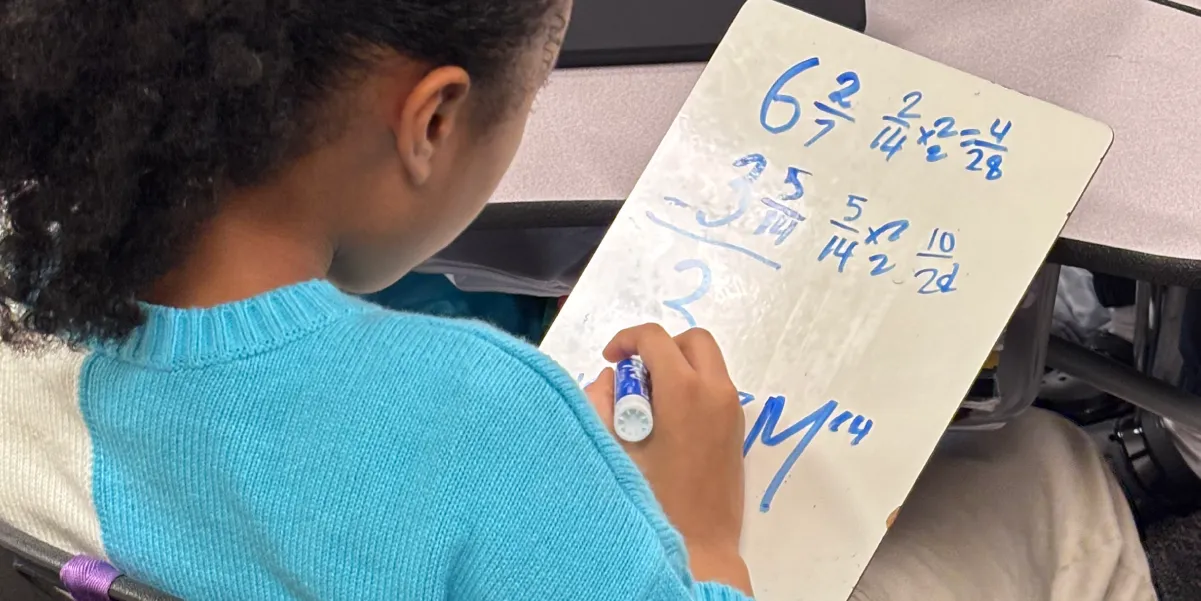 6 2/7 2/14 x 2/2 = 4/28
- 3 5/14 5/14 x 2/2 10/28
2